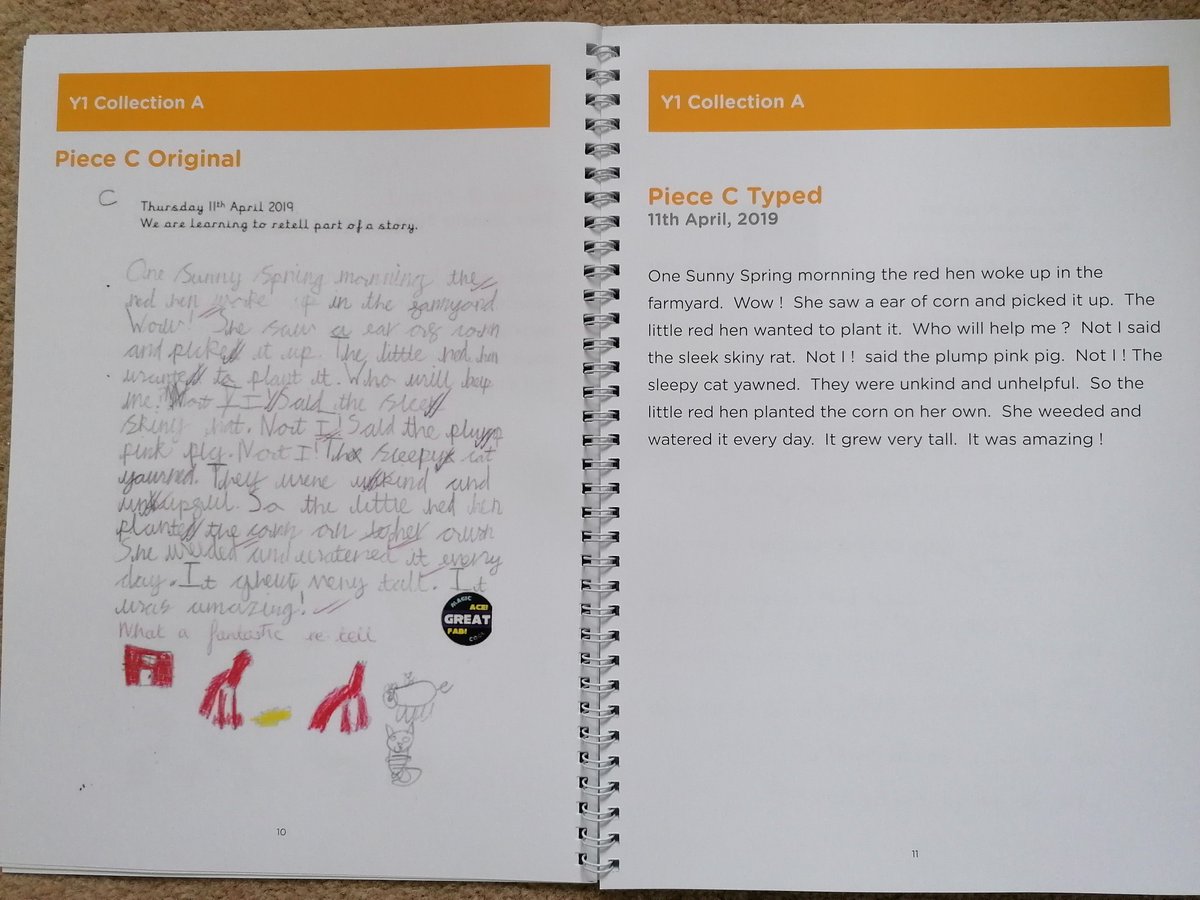 Y1 Collection A
Piece C Original
C
Thursday 11th April 2019
We are learning to retell part of a story.
One Sunny Spring mornning the
red hen woke up in the farmyard
Wow! She saw a ear of corn
and picked it up. The little red hen
wanted to plant it. Who will help
me. Not I! Said the sleek
skiny rat. Not I! Said the plump
pink pig. Not I! The sleepy cat
yawned. They were unkind and
unhelpful. So the little red hen
planted the corn on her own
She weeded and watered it every
day. It grew very tall. It
was amazing!
What a fantastic re tell
MAGIC
ACE!
GREAT
FAB!
COOL
10
Y1 Collection A
Piece C Typed
11th April, 2019
One Sunny Spring mornning the red hen woke up in the
farmyard. Wow ! She saw a ear of corn and picked it up. The
little red hen wanted to plant it. Who will help me ? Not I said
the sleek skiny rat. Not I ! said the plump pink pig. Not I ! The
sleepy cat yawned. They were unkind and unhelpful. So the
little red hen planted the corn on her own. She weeded and
watered it every day. It grew very tall. It was amazing !
11